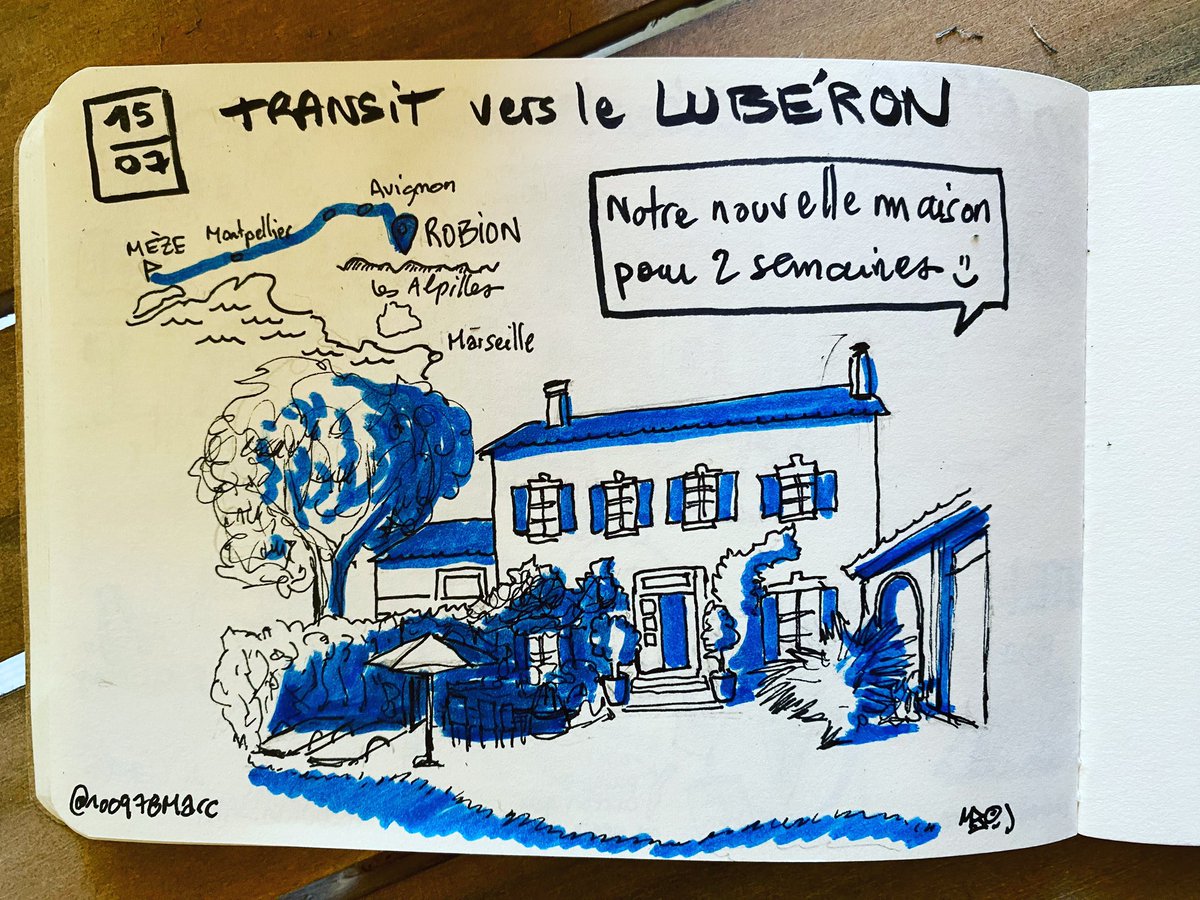 15
07
TRANSIT vers le LUBÉRON
Avignon
Montpellier
ROBION
MÈZE
Les Alpilles
Marseille
Notre nouvelle maison
pour 2 semaines
@10097BMarc